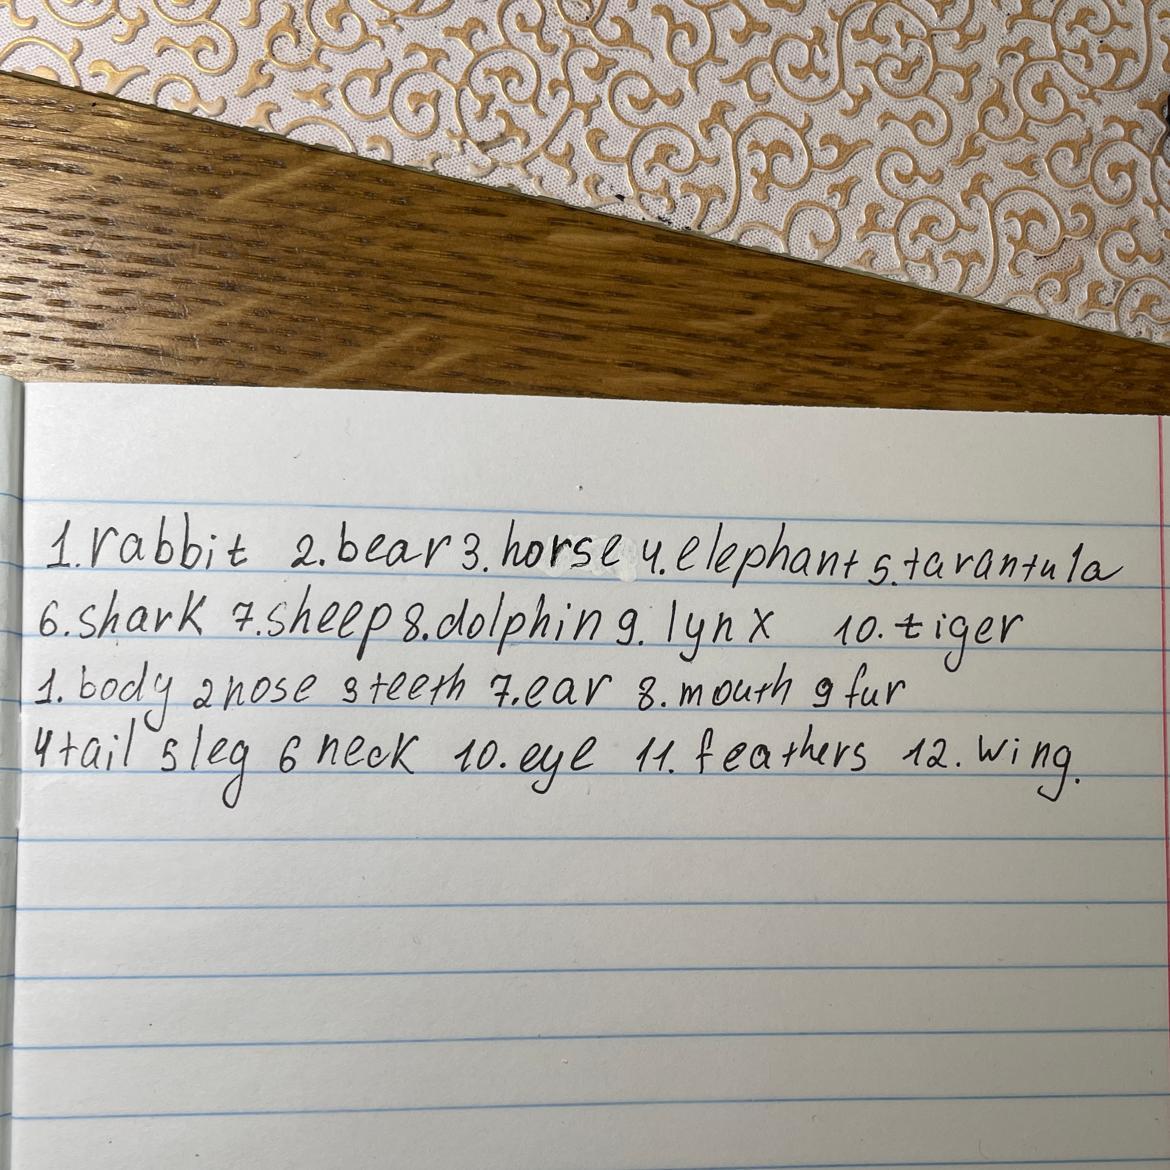 1. rabbit 2. bear 3. horse 4. elephant 5. tarantula
6. shark 7. sheep 8. dolphin 9. lynx 10. tiger
1. body 2 nose 3 teeth 7. ear 8. mouth 9 fur
4 tail 5 leg 6 neck 10. eye 11. feathers 12. wing.